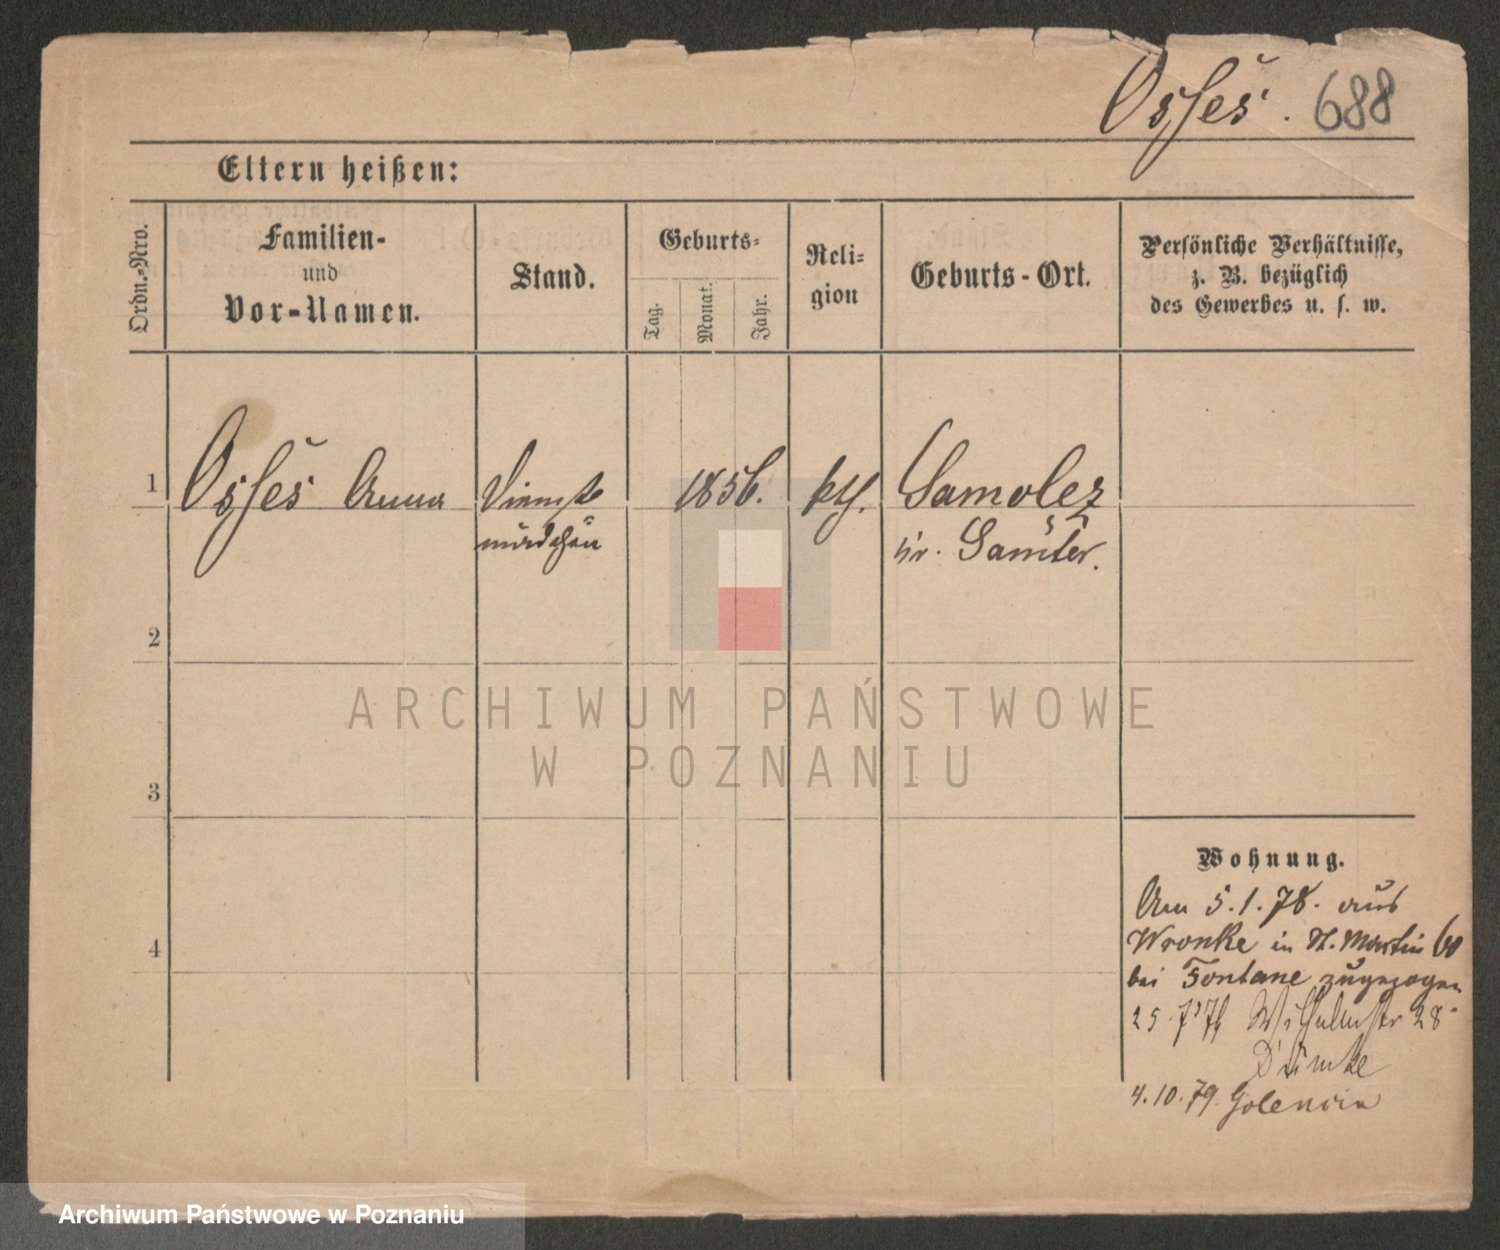 Osseš. 688
Eltern heißen:
Ordn.-Nro.
Familien-
und
Vor-Namen.
Stand.
Geburts-
Tag.
Monat.
Jahr.
Reli-
gion
Geburts-Ort.
Persönliche Verhältnisse,
z. B. bezüglich
des Gewerbes u. s. w.
1 Osseš Anna Dienst 1856. kth. Samolez
mädchen Kr. Samter.
2
ARCHIWUM PAŃSTWOWE
W POZNANIU
3
Wohnung.
Am 5.1.78. aus
Wronke in St. Martin 60
bei Fontane zugezogen
4
25. 7 Wilhelmstr 28
Dümke
4.10.79. Golencin
Archiwum Państwowe w Poznaniu